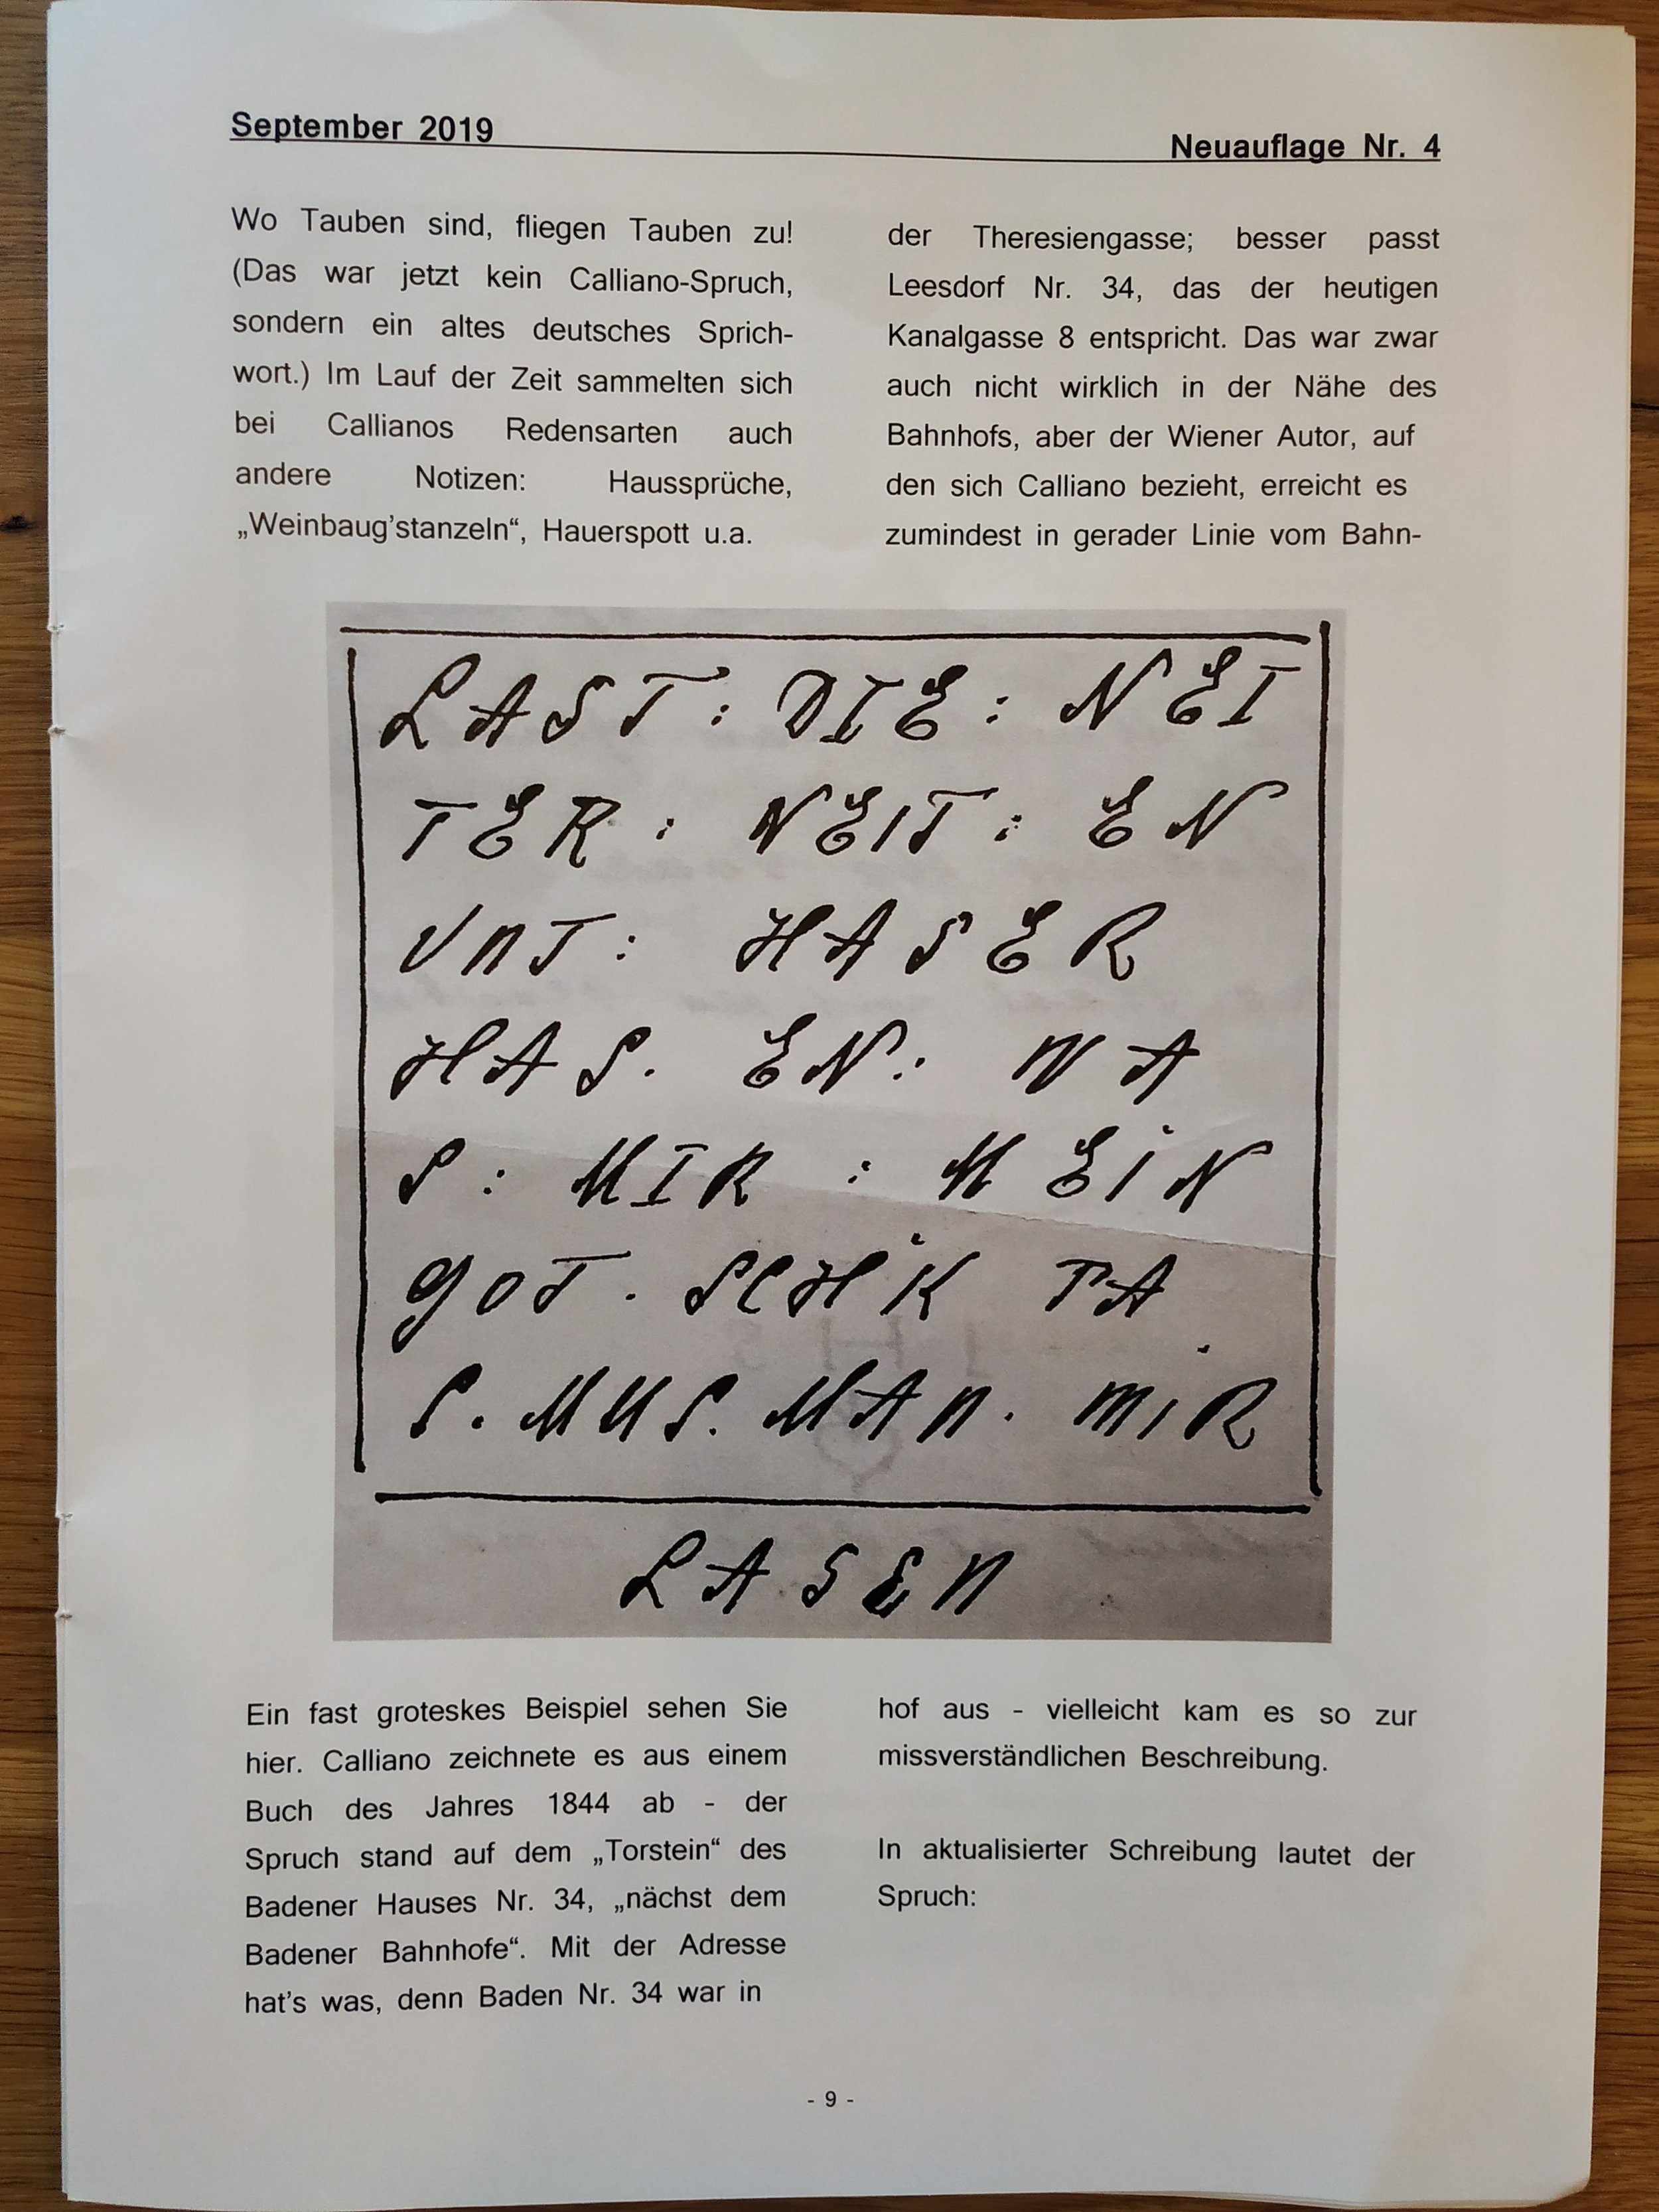 September 2019
Neuauflage Nr. 4
Wo Tauben sind, fliegen Tauben zu!
(Das war jetzt kein Calliano-Spruch,
sondern ein altes deutsches Sprich-
wort.) Im Lauf der Zeit sammelten sich
bei Callianos Redensarten auch
andere Notizen: Haussprüche,
„Weinbaug'stanzeln“, Hauerspott u.a.
der Theresiengasse; besser passt
Leesdorf Nr. 34, das der heutigen
Kanalgasse 8 entspricht. Das war zwar
auch nicht wirklich in der Nähe des
Bahnhofs, aber der Wiener Autor, auf
den sich Calliano bezieht, erreicht es
zumindest in gerader Linie vom Bahn-
LAST : DIE : NEI
TER : NEIT : EN
UNT : HASER
HAS . EN : WA
S : MIR : MEIN
GOT . SCHIK TA
S . MUS . MAN . MIR
LASEN
Ein fast groteskes Beispiel sehen Sie
hier. Calliano zeichnete es aus einem
Buch des Jahres 1844 ab - der
Spruch stand auf dem „Torstein“ des
Badener Hauses Nr. 34, „nächst dem
Badener Bahnhofe“. Mit der Adresse
hat's was, denn Baden Nr. 34 war in
hof aus - vielleicht kam es so zur
missverständlichen Beschreibung.
In aktualisierter Schreibung lautet der
Spruch:
- 9 -